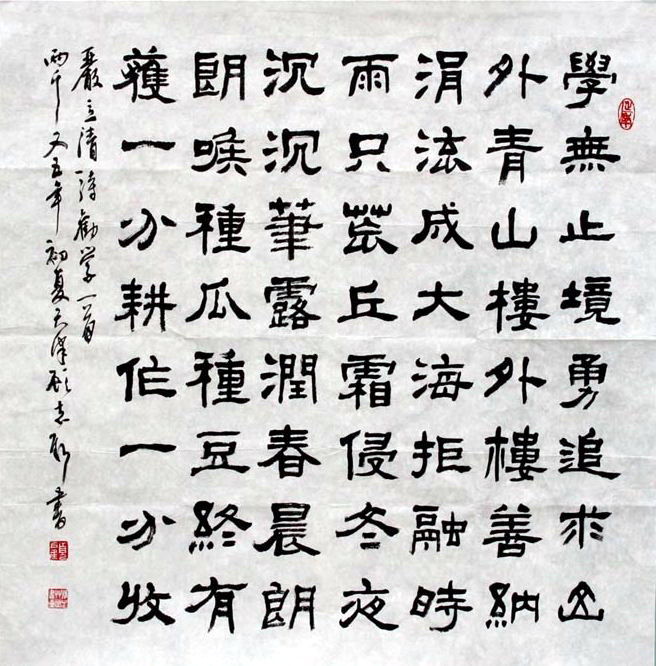 學無止境勇追求山
外青山樓外樓善納
涓流成大海拒融時
雨只荒丘霜侵冬夜
沉沉筆露潤春晨朗
朗喉種瓜種豆終有
穫一分耕作一分收
嚴立清詩勸学一首
又五年初夏天澤書